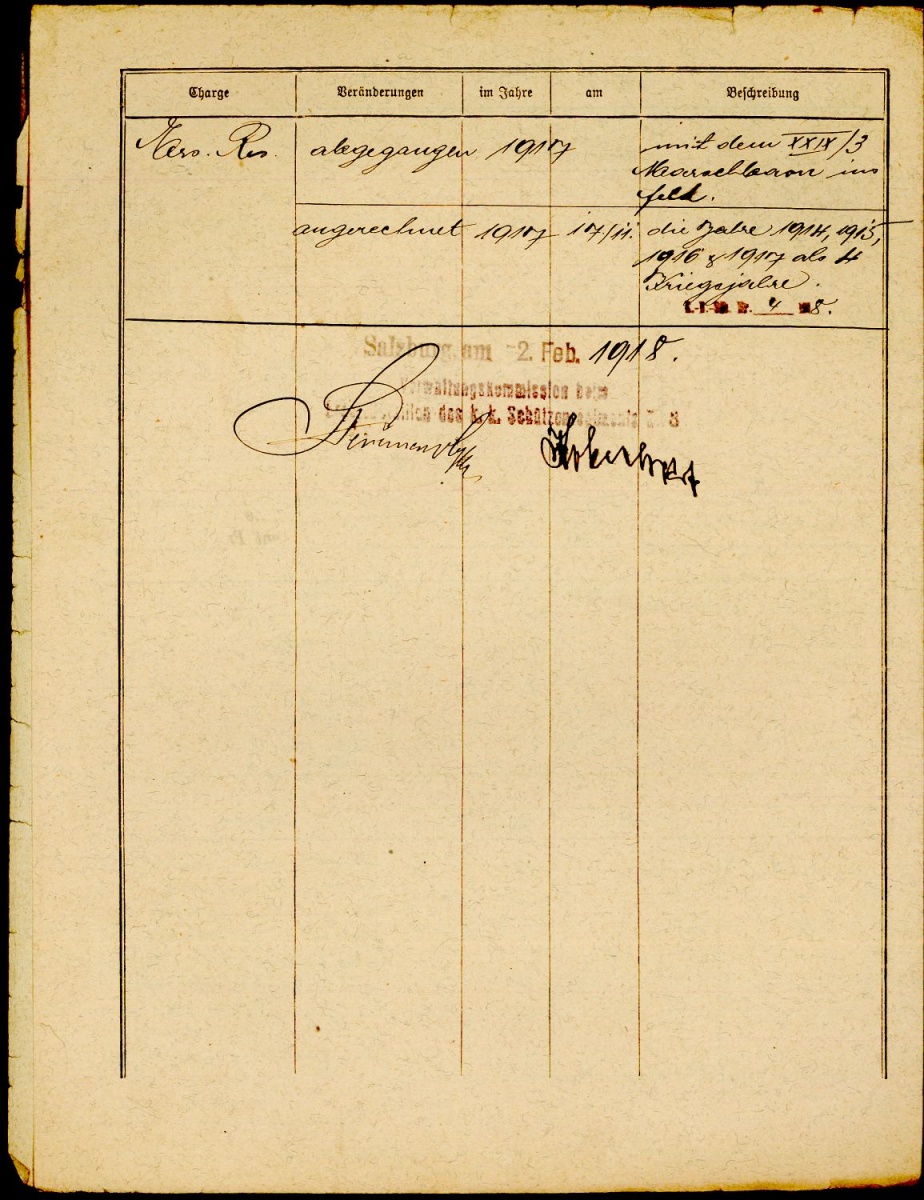 Charge Veränderungen im Jahre am Beschreibung
Ers. Res. abgegangen 1917 mit dem XXIX/3
Marschbaon ins
Feld.
angerechnet 1917 17/11. die Jahre 1914, 1915,
1916 & 1917 als 4
Kriegsjahre.
4 8.
Salzburg, am -2. Feb. 1918.
Verwaltungskommission beim
des k. k. Schützenregiments